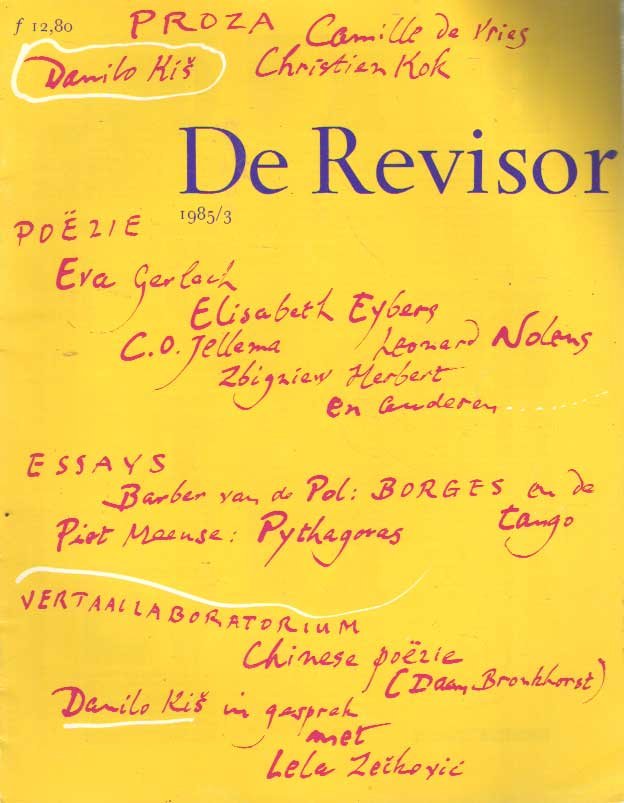 f 12,80
PROZA
Camille de Vries
Danilo Kiš
Christien Kok
De Revisor
1985/3
POËZIE
Eva Gerlach
Elisabeth Eybers
C.O. Jellema
Leonard Nolens
Zbigniew Herbert
en anderen.......
ESSAYS
Barber van de Pol: BORGES en de
tango
Piet Meeuse: Pythagoras
VERTAALLABORATORIUM
Chinese poëzie
(Daan Bronkhorst)
Danilo Kiš in gesprek
met
Lela Zečković